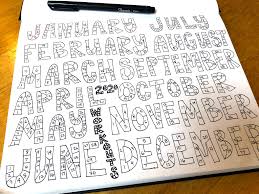 JANUARY JULY
FEBRUARY AUGUST
MARCH SEPTEMBER
APRIL 2020 OCTOBER
MAY WORKOUTS NOVEMBER
JUNE DECEMBER